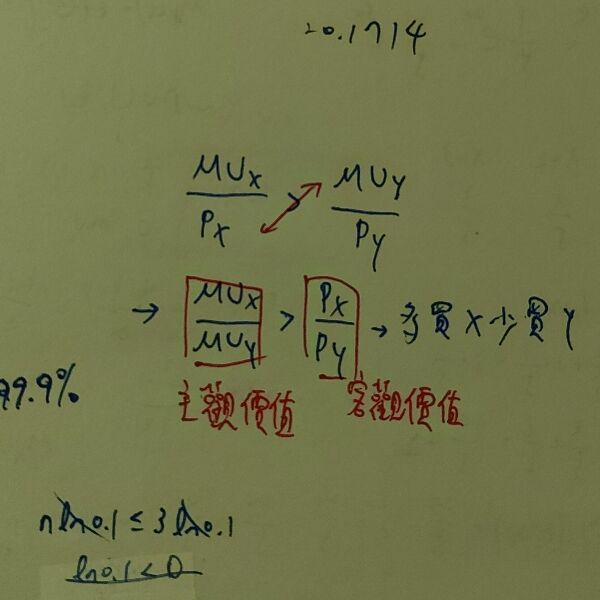 20.1714
MUx/Px > MUy/Py
→ MUx/MUy > Px/Py → 多買X少買Y
主觀價值 客觀價值
99.9%
n ln0.1 ≤ 3 ln0.1
ln0.1 < 0